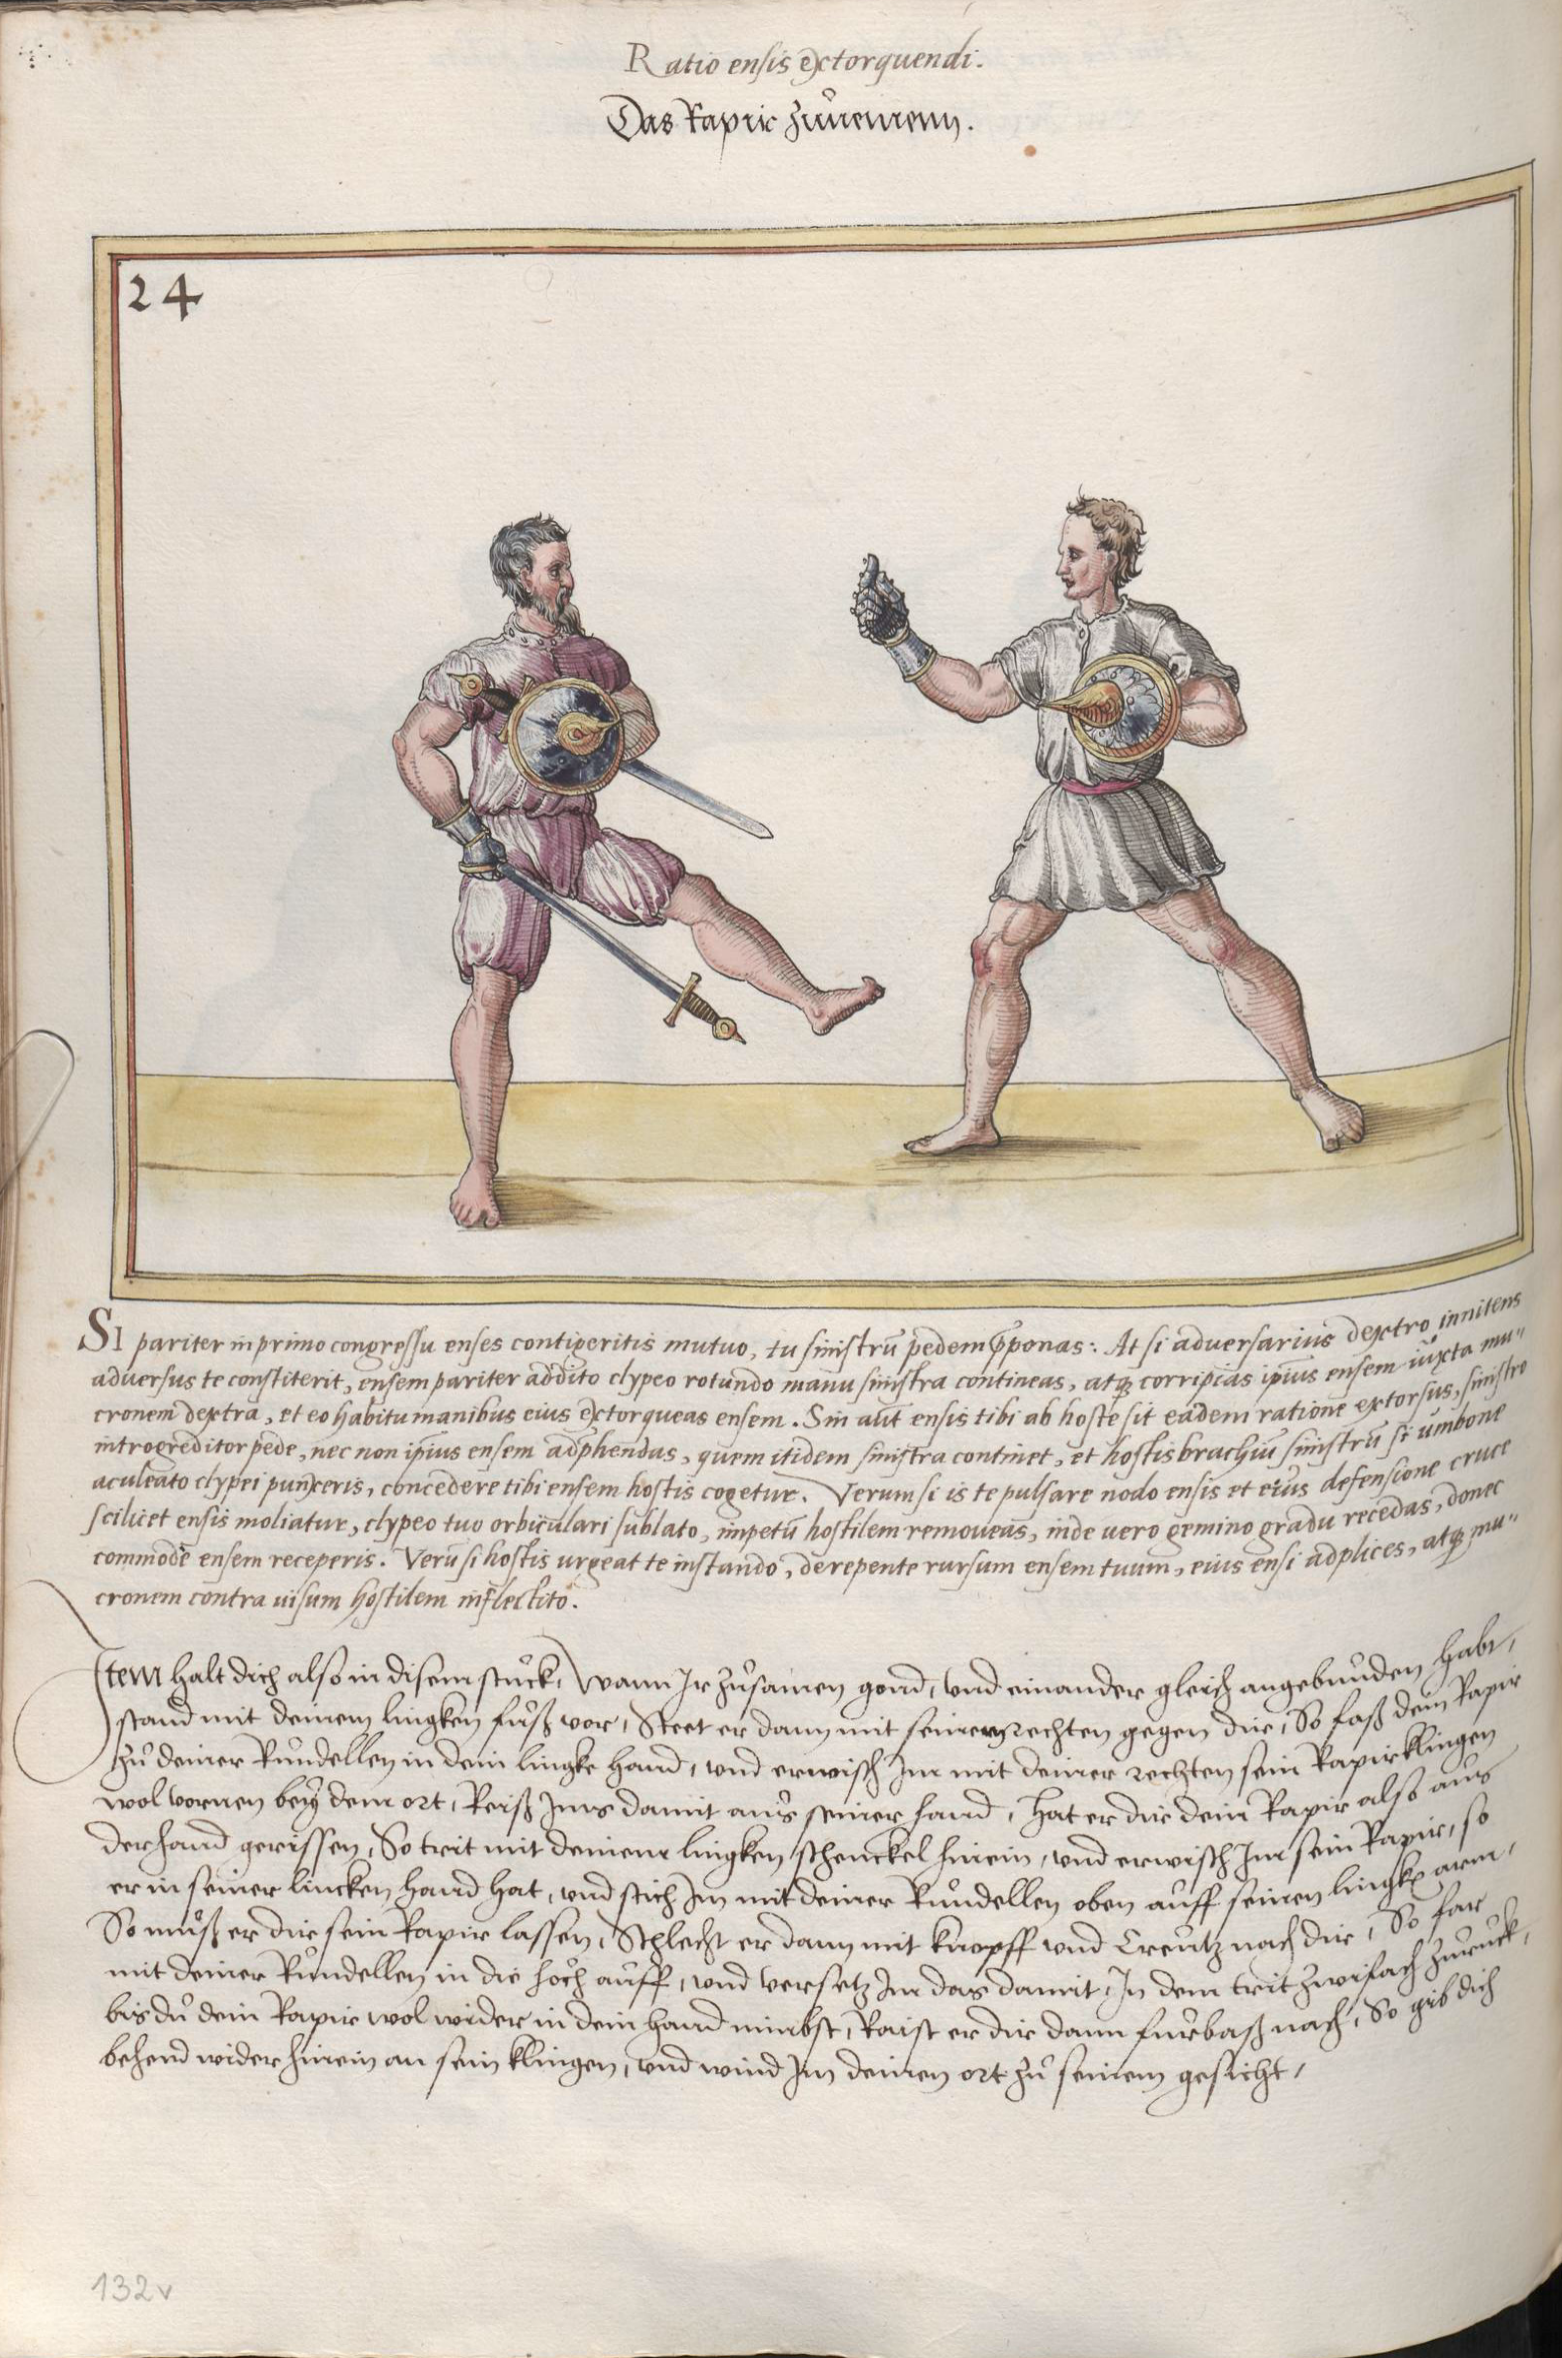 Ratio ensis extorquendi.
Das Rapir zůnemenn.
24
SI pariter in primo congressu enses contigeritis mutuo, tu sinistrū pedem p̄ponas: At si adversarius dextro innitens
adversus te constiterit, ensem pariter addito clypeo rotundo manu sinistra contineas, atq; corripias ipsius ensem iuxta mu"
cronem dextra, et eo habitu manibus eius extorqueas ensem. Sin aūt ensis tibi ab hoste sit eadem ratione extorsus, sinistro
introgreditor pede, nec non ip̄ius ensem adp̄hendas, quem itidem sinistra continet, et hostis brachiū sinistrū si umbone
aculeato clypei punxeris, concedere tibi ensem hostis cogetur. Verum si is te pulsare nodo ensis et eius defensione cruce
scilicet ensis moliatur, clypeo tuo orbiculari sublato, impetū hostilem removeas, inde uero gemino gradu recedas, donec
commode ensem receperis. Verū si hostis urgeat te instando, derepente rursum ensem tuum, eius ensi adplices, atq; mu"
cronem contra uisum hostilem inflectito.
Item halt dich also in disem stuck, Wann Ir zůsamen gond, vnd einander gleich angebunden habt,
stand mit deinem lingken fůß vor, Steet er dann mit seinem rechten gegen dir, So faß dein Rapir
zů deiner Rundellen in dein lingke hand, vnd erwisch Im mit deiner rechten sein Rapirklingen
wol vornen bey dem ort, Reiß Ims damit aus seiner hand, Hat er dir dein Rapir also aus
der hand gerissen, So trit mit deinem lingken schenckel hinein, vnd erwisch Im sein Rapir, so
er in seiner lincken hand hat, vnd stich Im mit deiner Rundellen oben auff seinen lingkē arm,
So můß er dir sein Rapir lassen, Schlecht er dann mit knopff vnd Creutz nach dir, So far
mit deiner Rundellen in die höch auff, vnd versetz Im das damit, In dem trit zwifach zuruck,
bis du dein Rapir wol wider in dein hand nimbst, Raist er dir dann furbaß nach, So gib dich
behend wider hinein an sein klingen, vnd wind Im deinen ort zů seinem gesicht,
132v